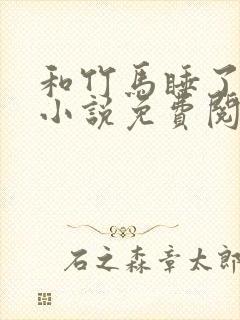 和竹馬睡了
小説免費閱
石之森章太郎